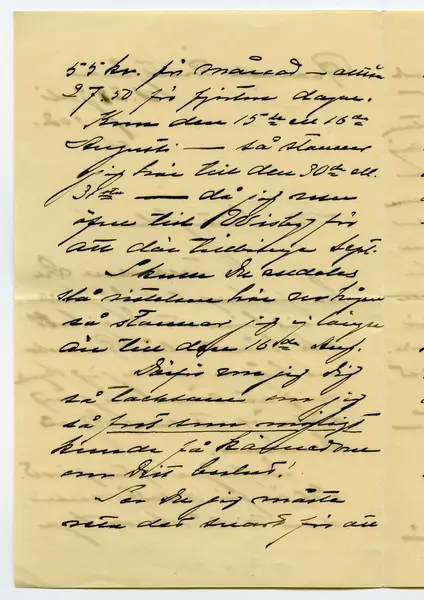 55 kr. för månad – alltså
27.50 för fjorton dagar.
Kom den 15de ell 16de
Augusti – så stannar
jag här till den 30de ell.
31sta – då jag reser
öfver till Wisby för
att där tillbringa sept.
Skulle Du andeles
så stannar jag ej längre
än till den 16de Aug.
Därför vore jag Dig
så tacksam om jag
så fort som möjligt
kunde få kännedom
om Ditt beslut!
Ser Du jag måste
veta det snart för att